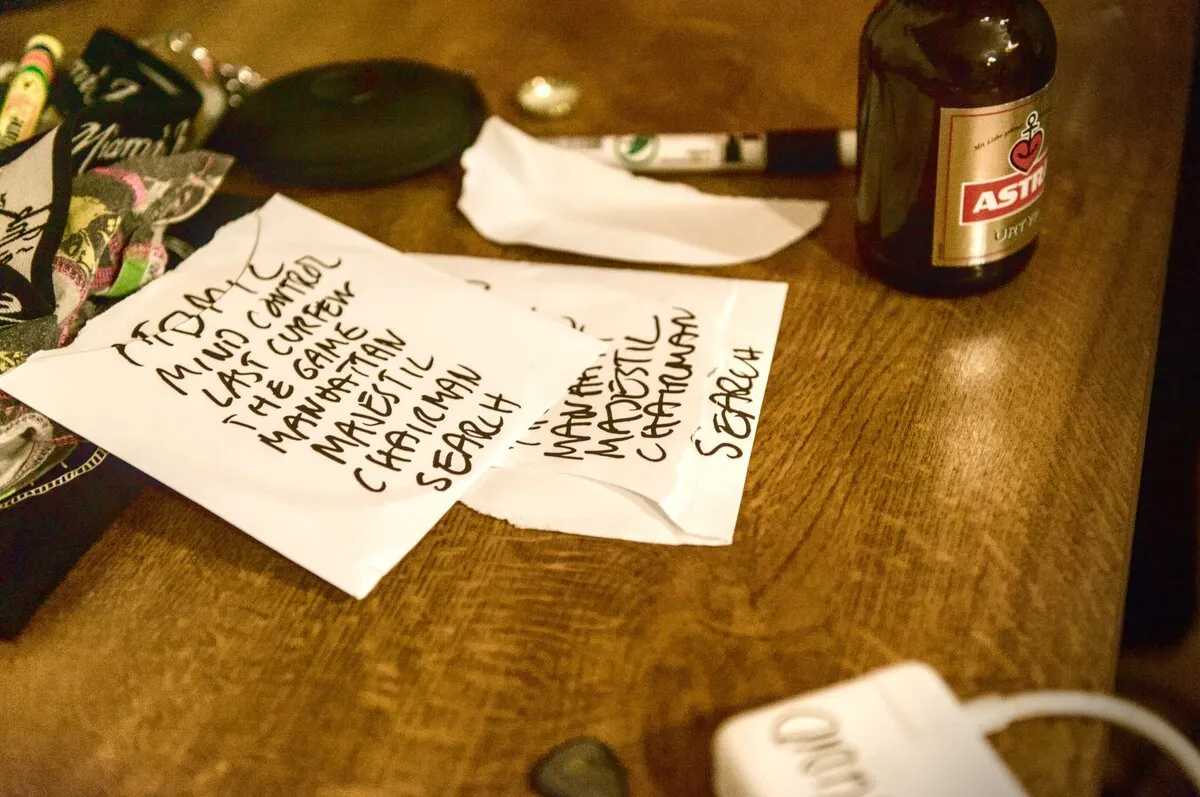 ATOMIC
MIND CONTROL
LAST CURFEW
THE GAME
MANHATTAN
MAJESTIC
CHAIRMAN
SEARCH
MANHATT
MAJESTIC
CHAIRMAN
SEARCH
Mit Liebe
ASTRA
URTYP
Miami